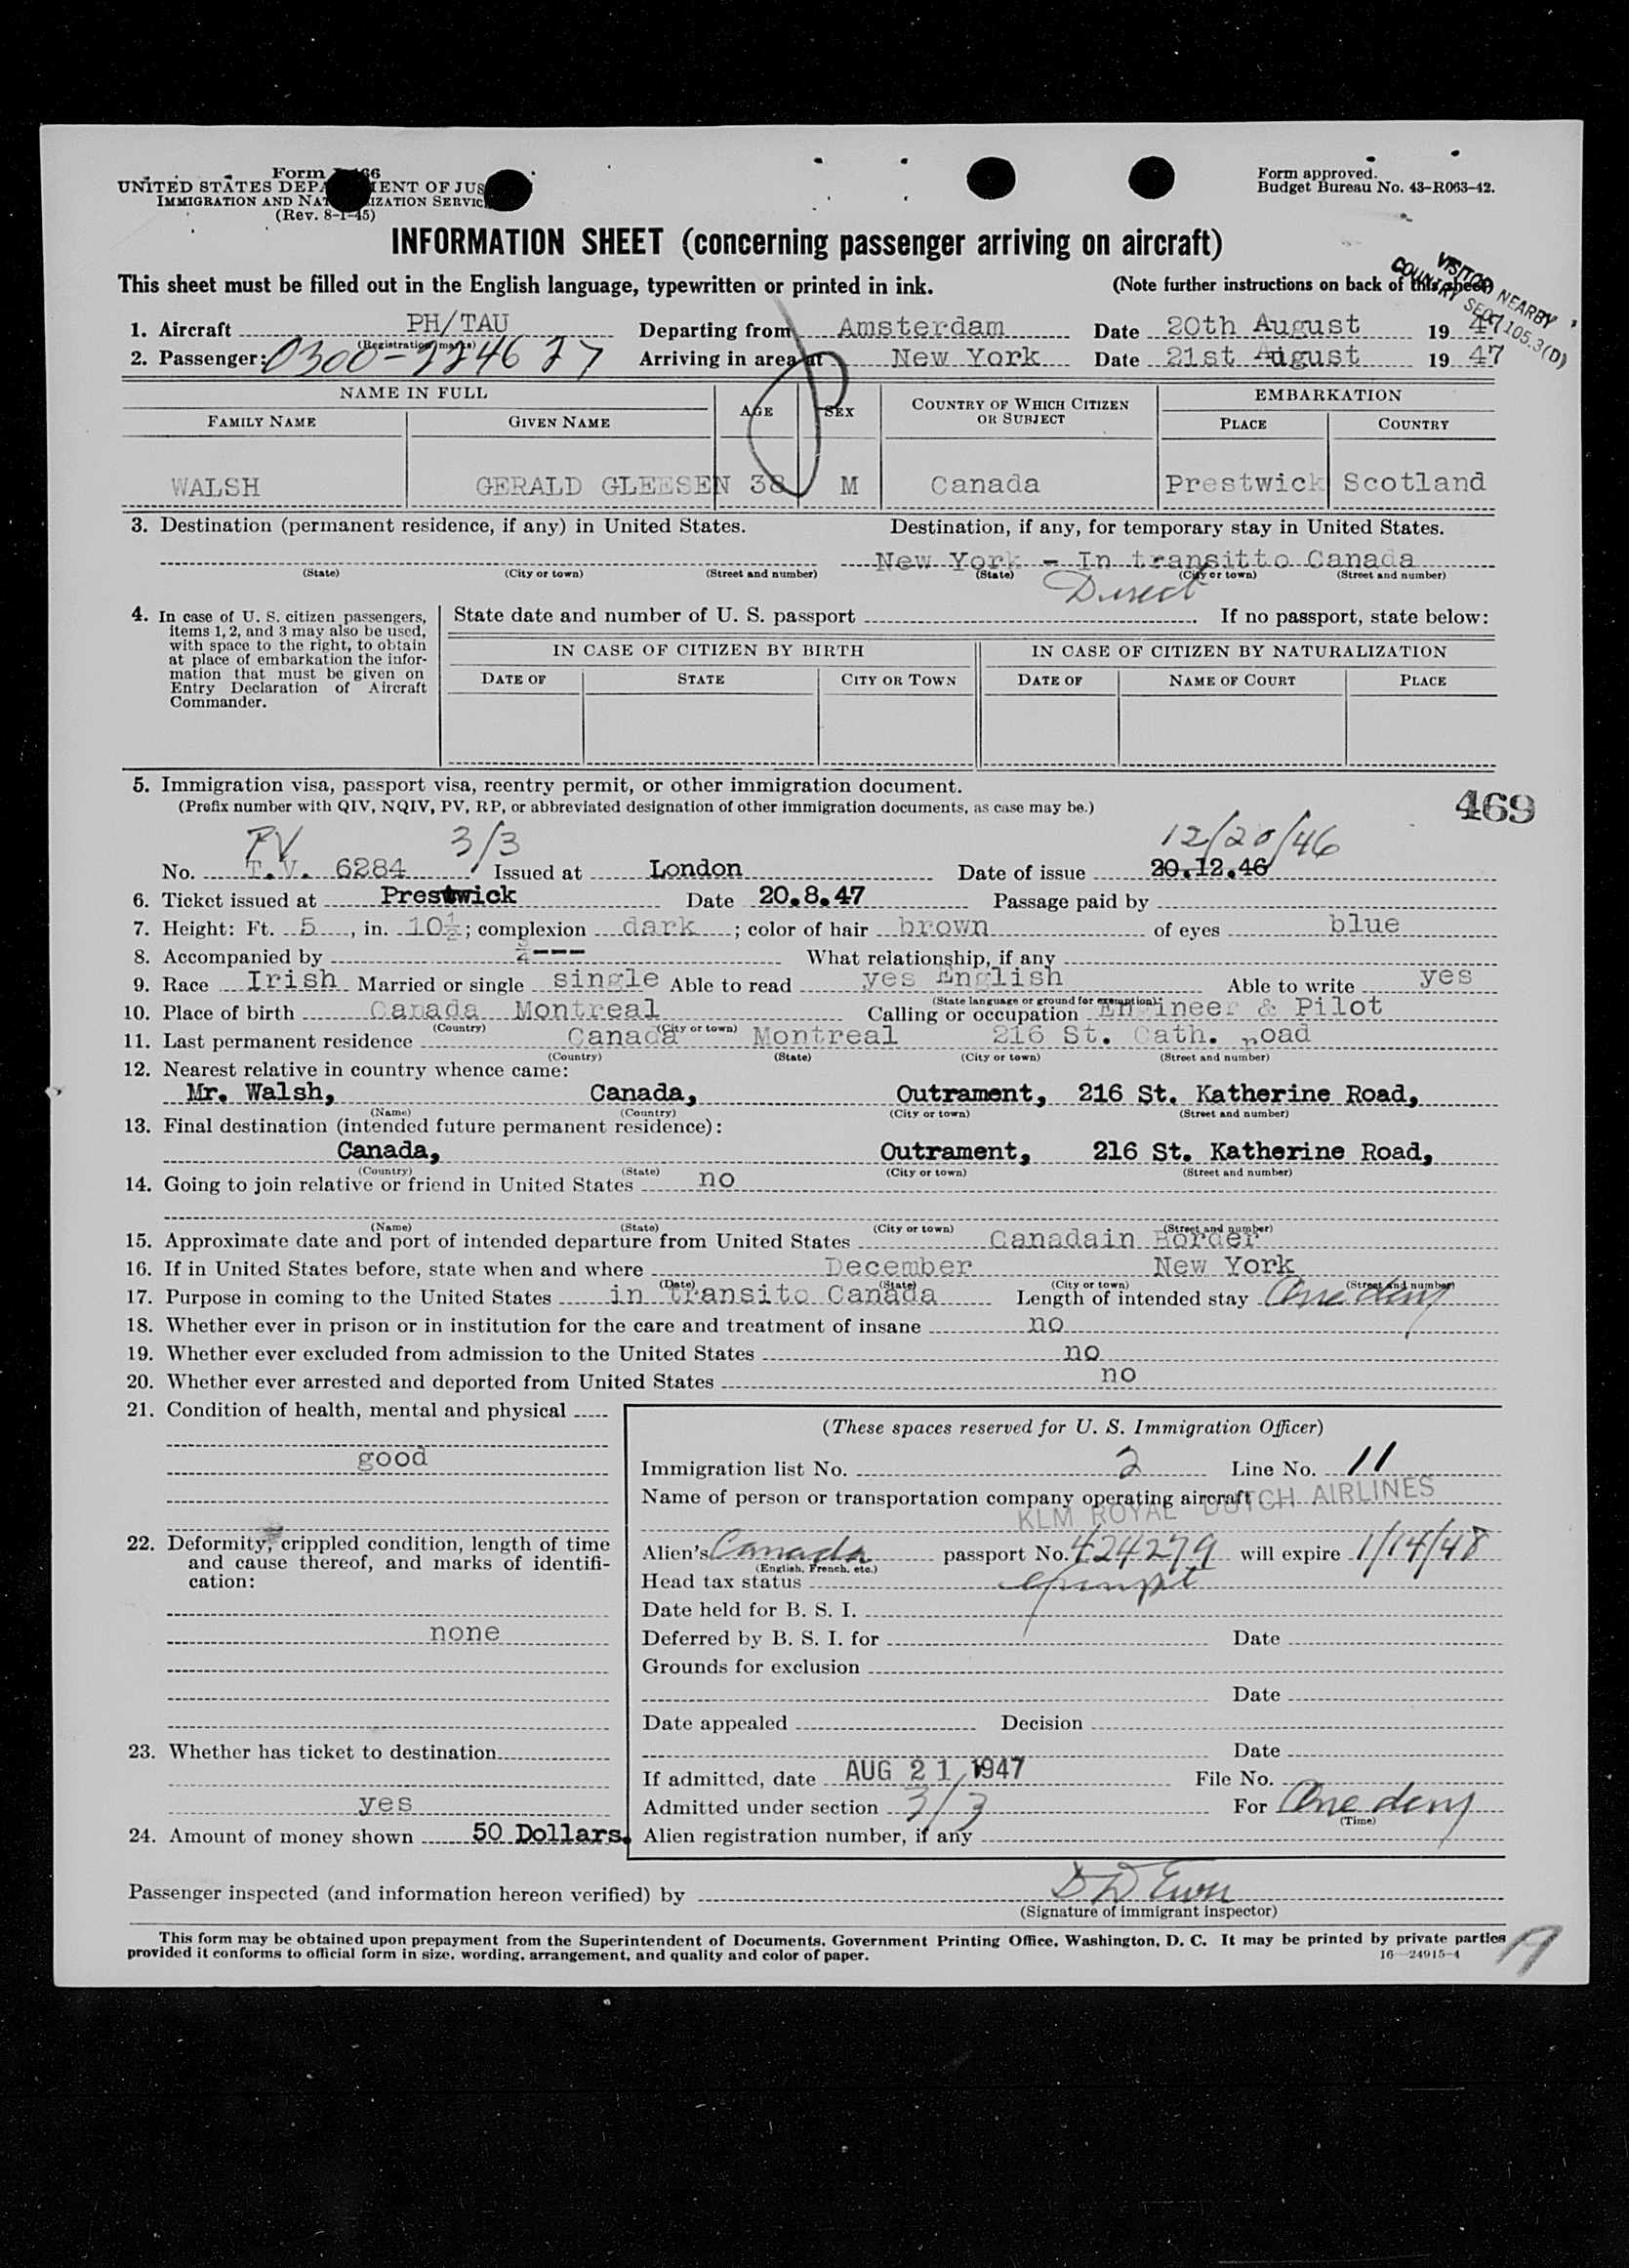 Form I-466
UNITED STATES DEPARTMENT OF JUSTICE
IMMIGRATION AND NATURALIZATION SERVICE
(Rev. 8-1-45)
Form approved.
Budget Bureau No. 43-R063-42.
INFORMATION SHEET (concerning passenger arriving on aircraft)
This sheet must be filled out in the English language, typewritten or printed in ink. (Note further instructions on back of this sheet)
VISITOR NEARBY
COUNTRY SEC 105.3(D)
1. Aircraft PH/TAU Departing from Amsterdam Date 20th August 19 47
(Registration marks)
2. Passenger: 0300- Arriving in area at New York Date 21st August 19 47
NAME IN FULL AGE SEX COUNTRY OF WHICH CITIZEN OR SUBJECT EMBARKATION
FAMILY NAME GIVEN NAME PLACE COUNTRY
WALSH GERALD GLEESEN 38 M Canada Prestwick Scotland
3. Destination (permanent residence, if any) in United States. Destination, if any, for temporary stay in United States.
New York - In transitto Canada
(State) (City or town) (Street and number) (State) (City or town) (Street and number)
Direct
4. In case of U. S. citizen passengers, items 1, 2, and 3 may also be used, with space to the right, to obtain at place of embarkation the information that must be given on Entry Declaration of Aircraft Commander.
State date and number of U. S. passport If no passport, state below:
IN CASE OF CITIZEN BY BIRTH IN CASE OF CITIZEN BY NATURALIZATION
DATE OF STATE CITY OR TOWN DATE OF NAME OF COURT PLACE
5. Immigration visa, passport visa, reentry permit, or other immigration document.
(Prefix number with QIV, NQIV, PV, RP, or abbreviated designation of other immigration documents, as case may be.)
469
PV 3/3 12/20/46
No. T.V. 6284 Issued at London Date of issue 20.12.46
6. Ticket issued at Prestwick Date 20.8.47 Passage paid by
7. Height: Ft. 5, in. 10½; complexion dark; color of hair brown of eyes blue
8. Accompanied by --- What relationship, if any
9. Race Irish Married or single single Able to read yes English Able to write yes
(State language or ground for exemption)
10. Place of birth Canada Montreal Calling or occupation Engineer & Pilot
(Country) (City or town)
11. Last permanent residence Canada Montreal 216 St. Cath. Road
(Country) (State) (City or town) (Street and number)
12. Nearest relative in country whence came:
Mr. Walsh, Canada, Outrament, 216 St. Katherine Road,
(Name) (Country) (City or town) (Street and number)
13. Final destination (intended future permanent residence):
Canada, Outrament, 216 St. Katherine Road,
(Country) (State) (City or town) (Street and number)
14. Going to join relative or friend in United States no
(Name) (State) (City or town) (Street and number)
15. Approximate date and port of intended departure from United States Canadain Border
16. If in United States before, state when and where December New York
(Date) (State) (City or town) (Street and number)
17. Purpose in coming to the United States in transito Canada Length of intended stay One day
18. Whether ever in prison or in institution for the care and treatment of insane no
19. Whether ever excluded from admission to the United States no
20. Whether ever arrested and deported from United States no
21. Condition of health, mental and physical
good
22. Deformity, crippled condition, length of time and cause thereof, and marks of identification:
none
23. Whether has ticket to destination
yes
24. Amount of money shown 50 Dollars.
(These spaces reserved for U. S. Immigration Officer)
Immigration list No. 2 Line No. 11
Name of person or transportation company operating aircraft
KLM ROYAL DUTCH AIRLINES
Alien's Canada passport No. 424279 will expire 1/14/48
(English, French, etc.)
Head tax status exempt
Date held for B. S. I.
Deferred by B. S. I. for Date
Grounds for exclusion
Date
Date appealed Decision
Date
If admitted, date AUG 21 1947 File No.
Admitted under section 3/3 For One day
(Time)
Alien registration number, if any
Passenger inspected (and information hereon verified) by
(Signature of immigrant inspector)
This form may be obtained upon prepayment from the Superintendent of Documents, Government Printing Office, Washington, D. C. It may be printed by private parties
provided it conforms to official form in size, wording, arrangement, and quality and color of paper. 16—24915-4